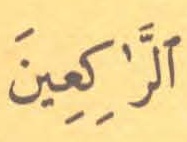 ٱلرَّٰكِعِينَ